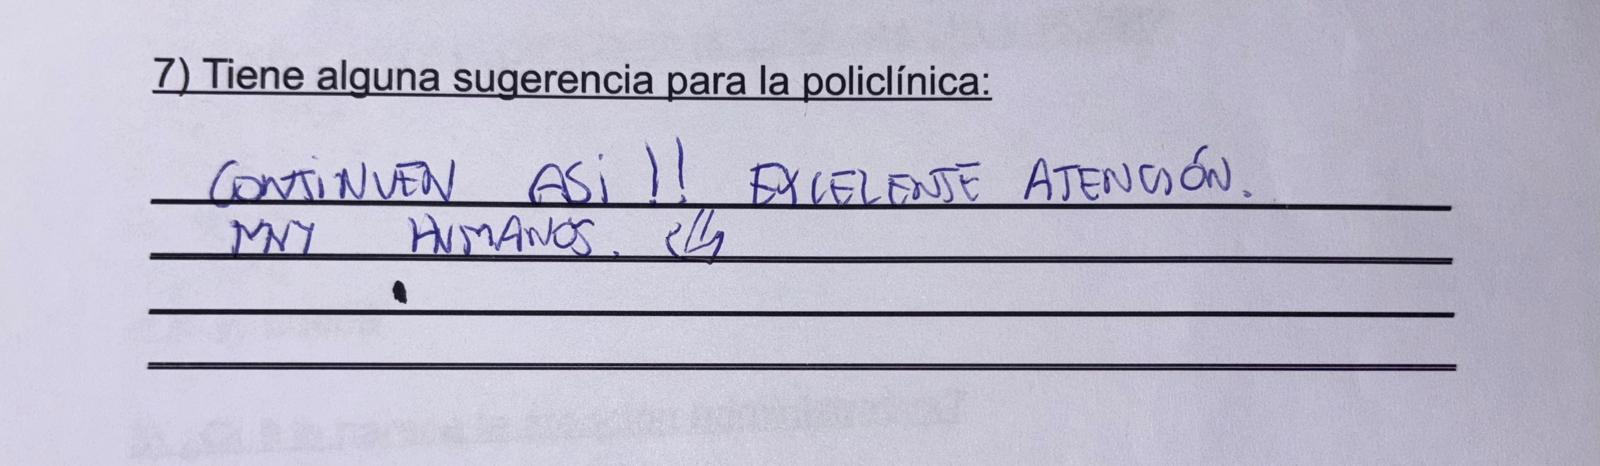 7) Tiene alguna sugerencia para la policlínica:
CONTINUEN ASi !! EXCELENTE ATENCIÓN.
MUY HUMANOS.